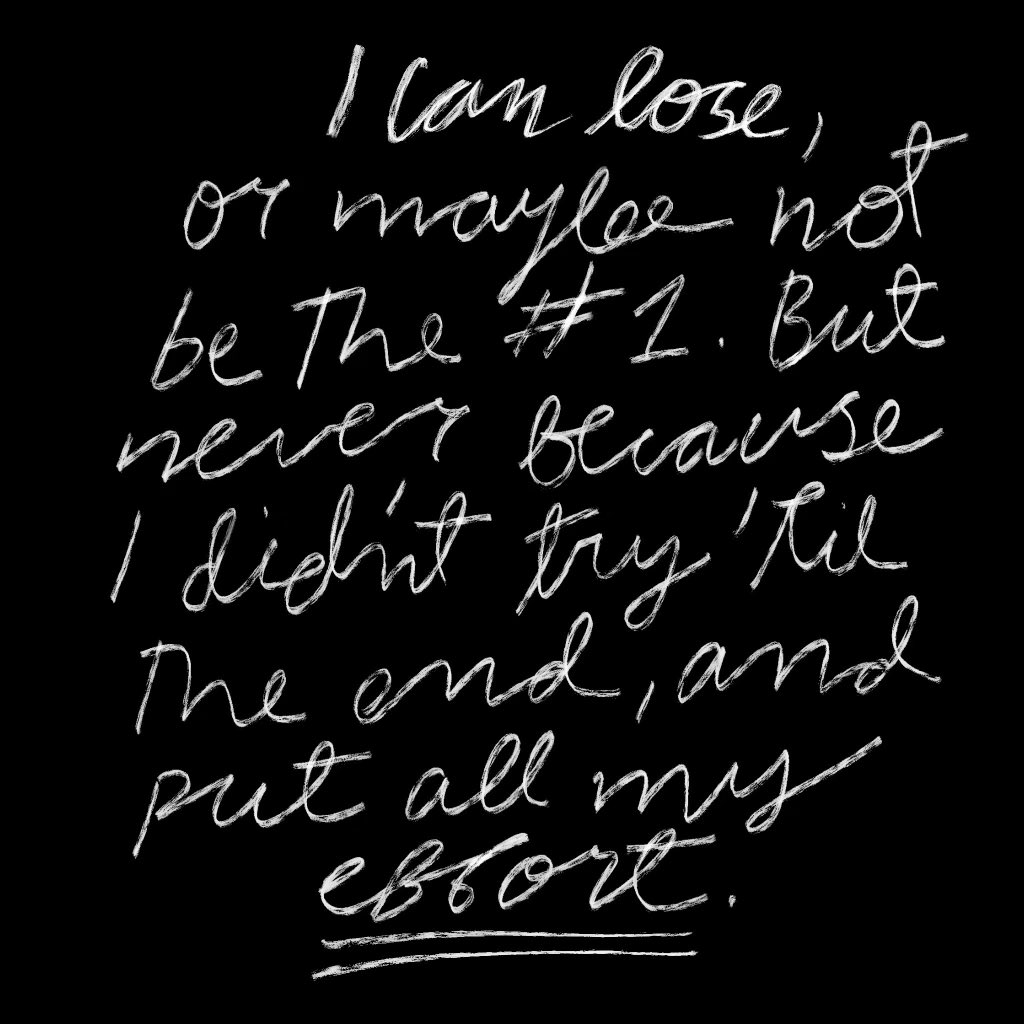 I can lose,
or maybe not
be the #1. But
never because
I didn't try 'til
the end, and
put all my
effort.